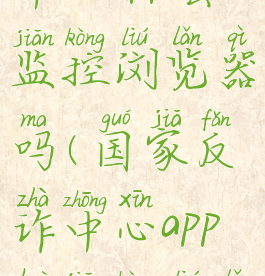 jiān kòng liú lǎn qì
监控浏览器
ma guó jiā fǎn
吗(国家反
zhà zhōng xīn
诈中心app